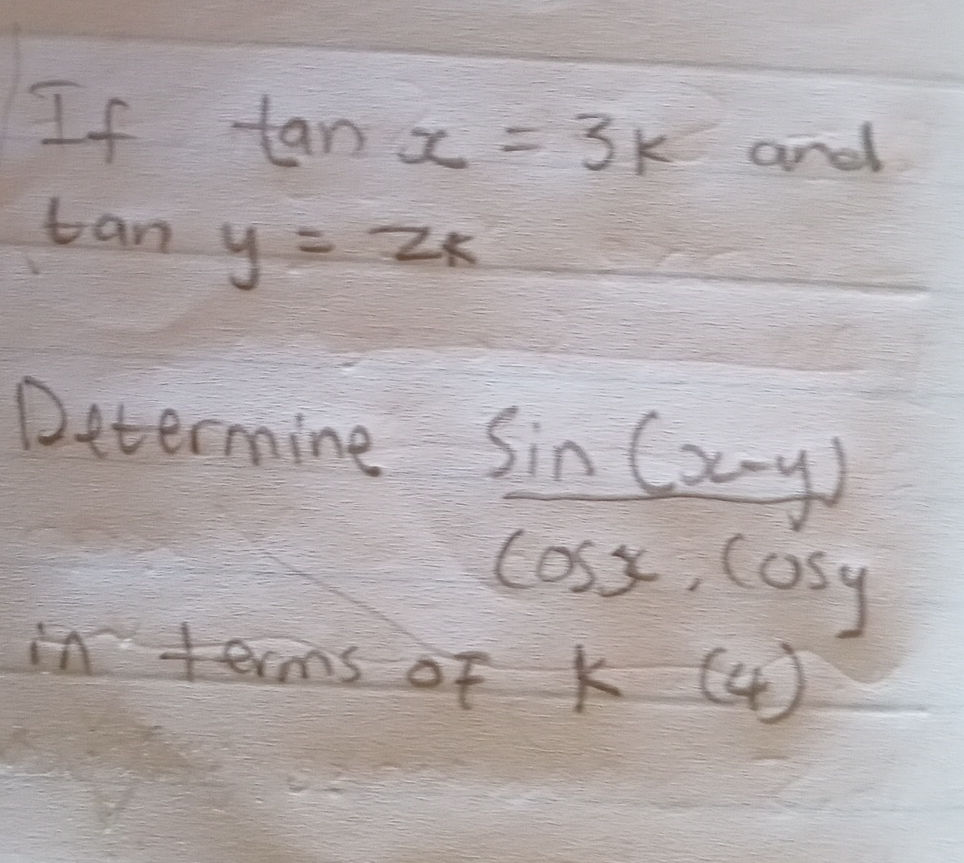 If tan x = 3k and
tan y = 2k
Determine Sin (x-y)
Cosx . Cosy
in terms of k (4)